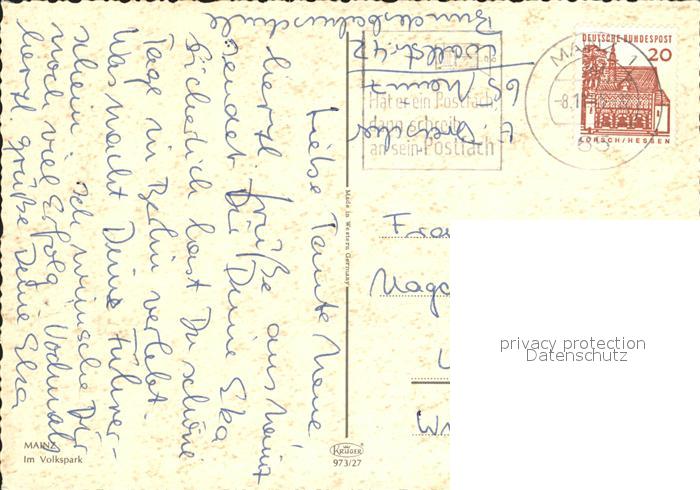 Liebe Tante
herzl. Grüße aus Mainz
sendet Dir Deine Elsa
Sicherlich hast Du schöne
Tage in Berlin verlebt.
Was macht Deine Führer-
schein. Ich wünsche Dir
noch viel Erfolg. Nochmals
herzl. grüße Deine Elsa
65 Mainz
Wallstr. 42
Bundesbahnschule
Hat er ein Postfach,
dann schreib
an sein Postfach
DEUTSCHE BUNDESPOST
20
LORSCH/HESSEN
Made in Western Germany
Magd
privacy protection
Datenschutz
MAINZ
Im Volkspark
KRÜGER
973/27